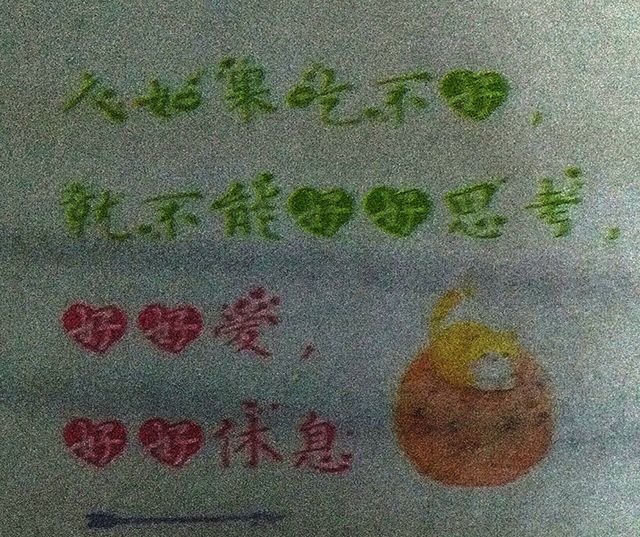 人如果吃不好，
就不能好好思考，
好好爱，
好好休息